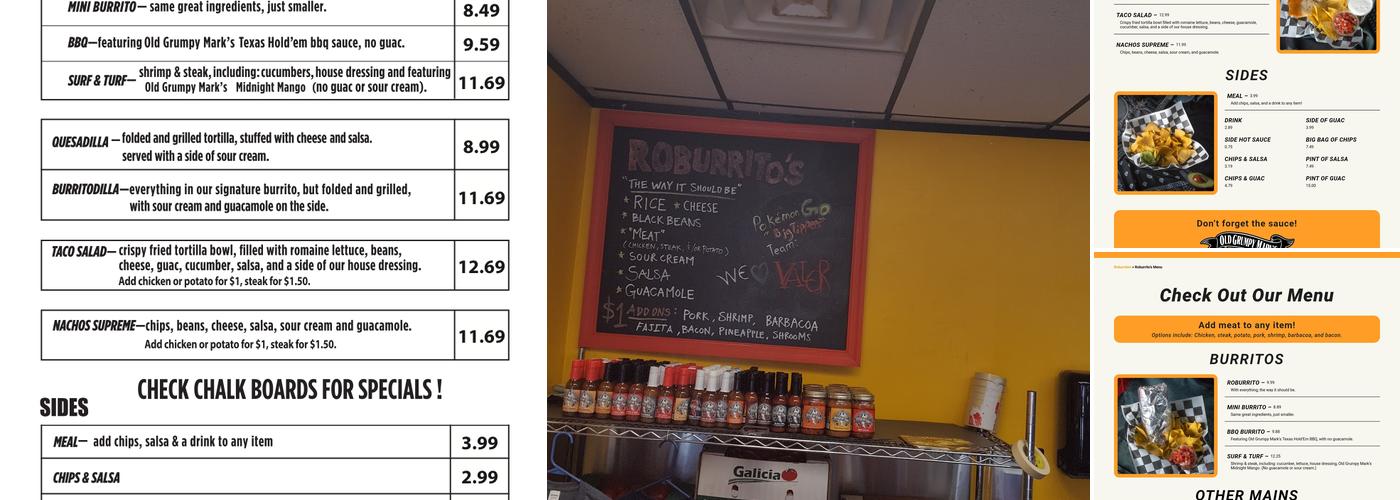 MINI BURRITO— same great ingredients, just smaller.
8.49
BBQ—featuring Old Grumpy Mark's Texas Hold'em bbq sauce, no guac.
9.59
SURF & TURF— shrimp & steak, including: cucumbers, house dressing and featuring
Old Grumpy Mark's Midnight Mango (no guac or sour cream).
11.69
QUESADILLA — folded and grilled tortilla, stuffed with cheese and salsa.
served with a side of sour cream.
8.99
BURRITODILLA—everything in our signature burrito, but folded and grilled,
with sour cream and guacamole on the side.
11.69
TACO SALAD— crispy fried tortilla bowl, filled with romaine lettuce, beans,
cheese, guac, cucumber, salsa, and a side of our house dressing.
Add chicken or potato for $1, steak for $1.50.
12.69
NACHOS SUPREME—chips, beans, cheese, salsa, sour cream and guacamole.
Add chicken or potato for $1, steak for $1.50.
11.69
CHECK CHALK BOARDS FOR SPECIALS !
SIDES
MEAL— add chips, salsa & a drink to any item
3.99
CHIPS & SALSA
2.99
ROBURRITO'S
"THE WAY IT SHOULD BE"
* RICE * CHEESE
* BLACK BEANS
* "MEAT"
(CHICKEN, STEAK, &/OR POTATO)
* SOUR CREAM
* SALSA
* GUACAMOLE
$1 ADD ONS: PORK, SHRIMP, BARBACOA
FAJITA, BACON, PINEAPPLE, SHROOMS
Pokémon GO
Team:
WE ♡ VALOR
Galicia
TACO SALAD — 12.99
Crispy fried tortilla bowl filled with romaine lettuce, beans, cheese, guacamole,
cucumber, salsa, and a side of our house dressing.
NACHOS SUPREME — 11.99
Chips, beans, cheese, salsa, sour cream, and guacamole.
SIDES
MEAL — 3.99
Add chips, salsa, and a drink to any item!
DRINK
2.89
SIDE OF GUAC
3.99
SIDE HOT SAUCE
0.75
BIG BAG OF CHIPS
7.49
CHIPS & SALSA
3.19
PINT OF SALSA
7.49
CHIPS & GUAC
4.79
PINT OF GUAC
15.00
Don't forget the sauce!
OLD GRUMPY MARK'S
Roburritos » Roburrito's Menu
Check Out Our Menu
Add meat to any item!
Options include: Chicken, steak, potato, pork, shrimp, barbacoa, and bacon.
BURRITOS
ROBURRITO — 9.99
With everything, the way it should be.
MINI BURRITO — 8.89
Same great ingredients, just smaller.
BBQ BURRITO — 9.88
Featuring Old Grumpy Mark's Texas Hold'Em BBQ, with no guacamole.
SURF & TURF — 12.25
Shrimp & steak, including: cucumber, lettuce, house dressing, Old Grumpy Mark's
Midnight Mango. (No guacamole or sour cream.)
OTHER MAINS